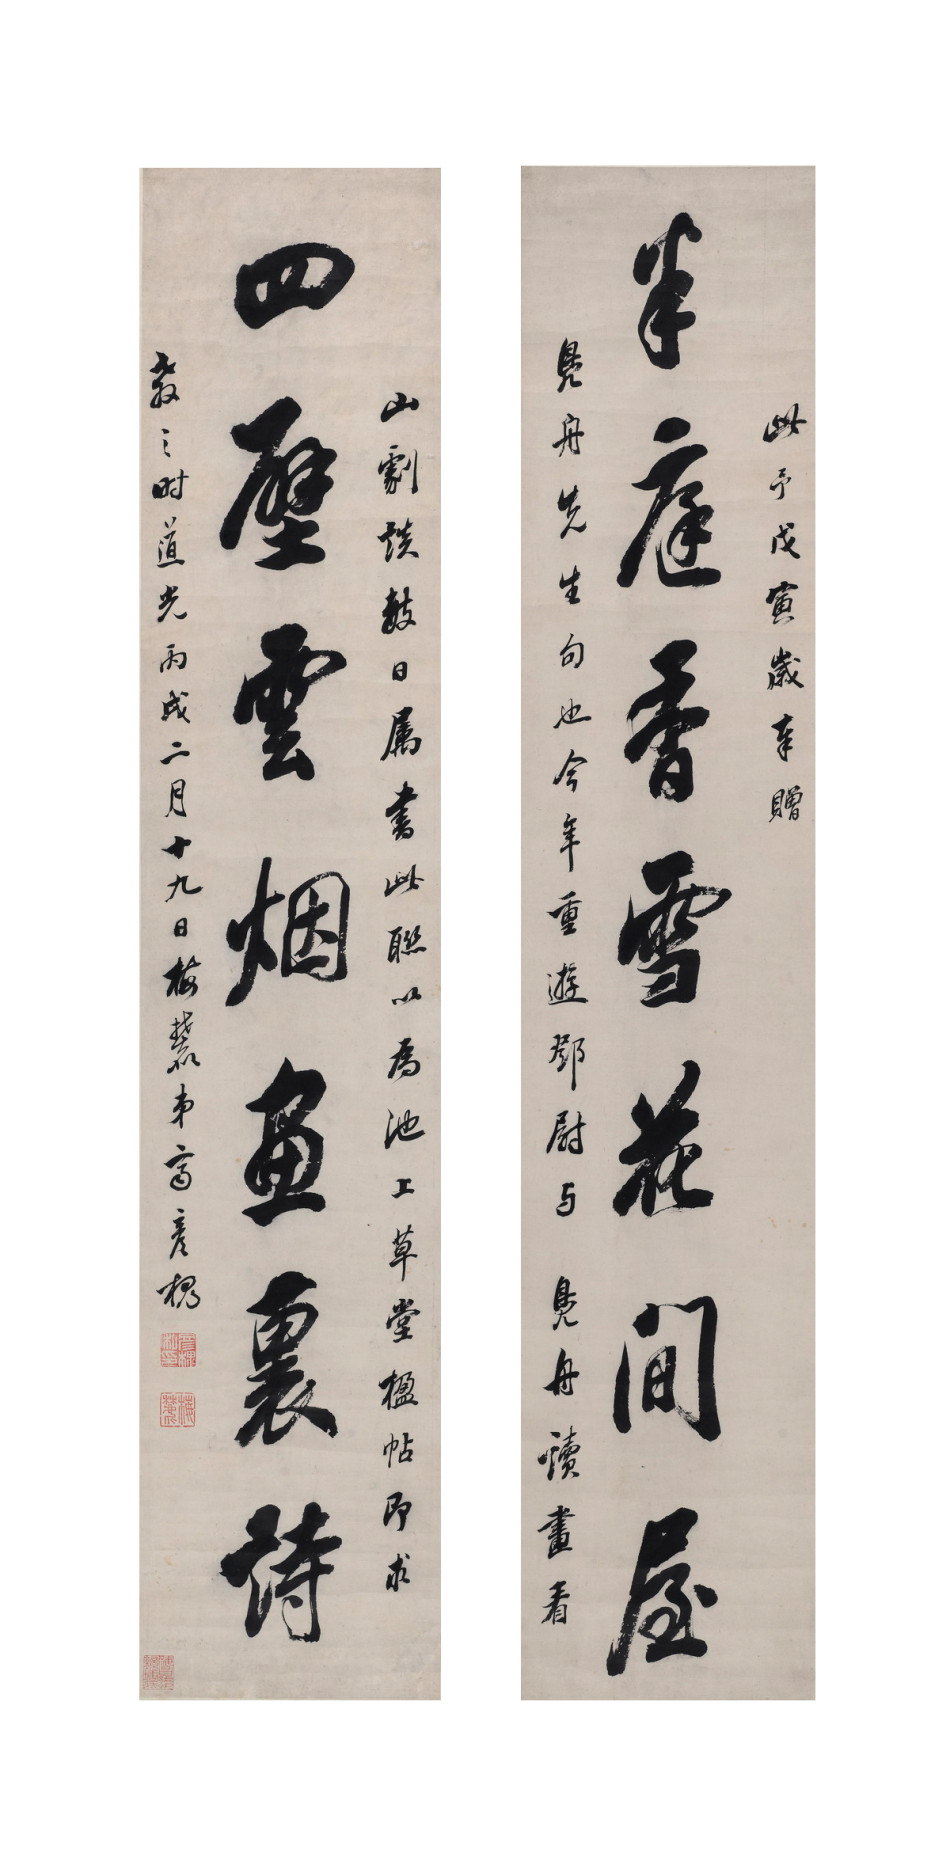 此予戊寅歲奉贈
半庭香雪花間屋
見舟先生句也今年重遊鄧尉与見舟讀畫看
山劇談數日属書此聯以為池上草堂楹帖即求
四壁雲烟畫裏詩
教之時道光丙戌二月十九日梅麓弟齊彥槐